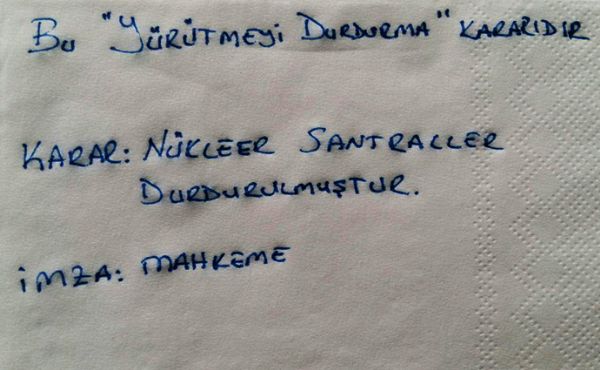 Bu "YÜRÜTMEYİ DURDURMA" KARARIDIR
KARAR: NÜKLEER SANTRALLER
DURDURULMUŞTUR.
İMZA: MAHKEME